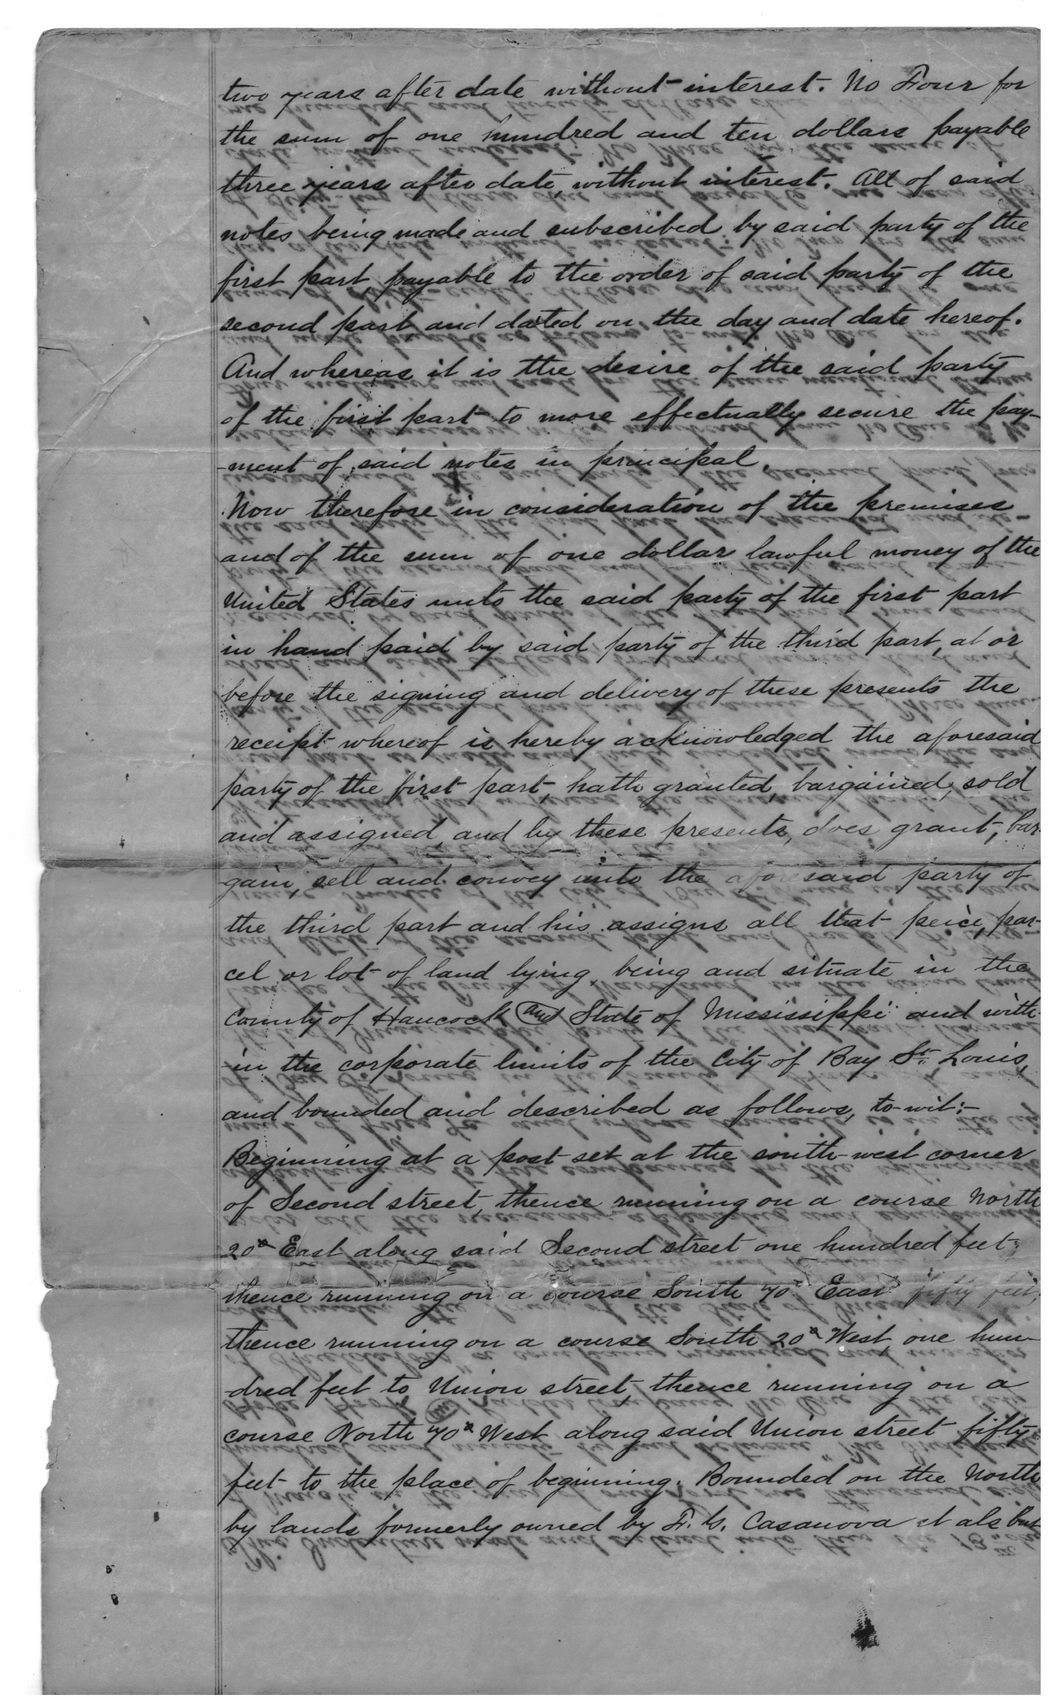 two years after date without interest. No Four for
the sum of one hundred and ten dollars payable
three years after date without interest. All of said
notes being made and subscribed by said party of the
first part payable to the order of said party of the
second part and dated on the day and date hereof.
And whereas it is the desire of the said party
of the first part to more effectually secure the pay-
-ment of said notes in principal.
Now therefore in consideration of the premises
and of the sum of one dollar lawful money of the
United States unto the said party of the first part
in hand paid by said party of the third part, at or
before the signing and delivery of these presents the
receipt whereof is hereby acknowledged the aforesaid
party of the first part hath granted, bargained, sold
and assigned, and by these presents, does grant, bar-
gain, sell and convey unto the aforesaid party of
the third part and his assigns all that peice, par-
cel or lot of land lying being and situate in the
County of Hancock and State of Mississippi and with-
in the corporate limits of the City of Bay St. Louis,
and bounded and described as follows, to-wit:-
Beginning at a post set at the south-west corner
of Second street, thence running on a course North
20° East along said Second street one hundred feet;
thence running on a course South 70° East fifty feet,
thence running on a course South 20° West, one hun-
-dred feet to Union street, thence running on a
course North 70° West along said Union street fifty
feet to the place of beginning. Bounded on the North
by lands formerly owned by F. G. Casanova et als but